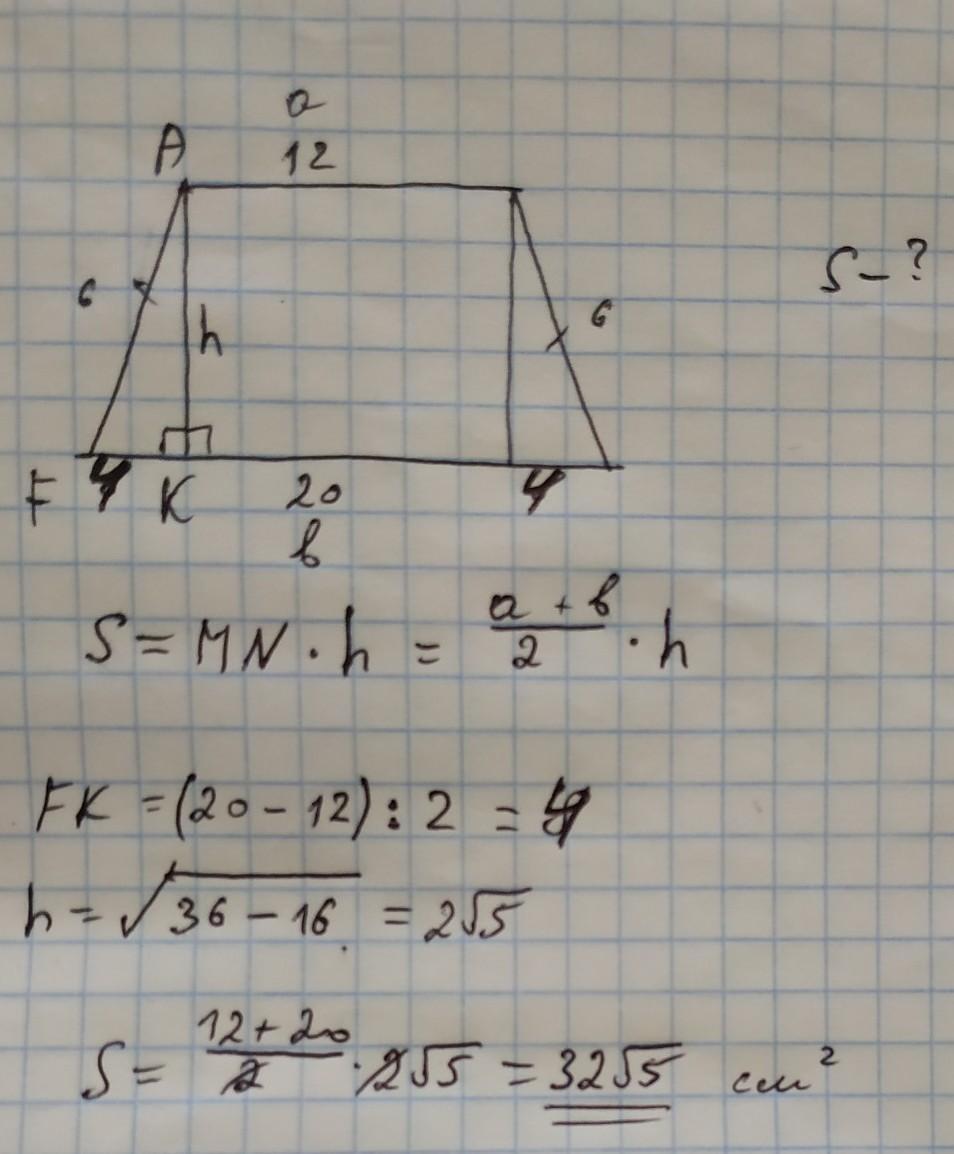 a
A 12
S – ?
6 h 6
F 4 K 20 4
в
S = MN · h = (a + в)/2 · h
FK = (20 – 12) : 2 = 4
h = √(36 – 16) = 2√5
S = (12 + 20)/2 · 2√5 = 32√5 см²